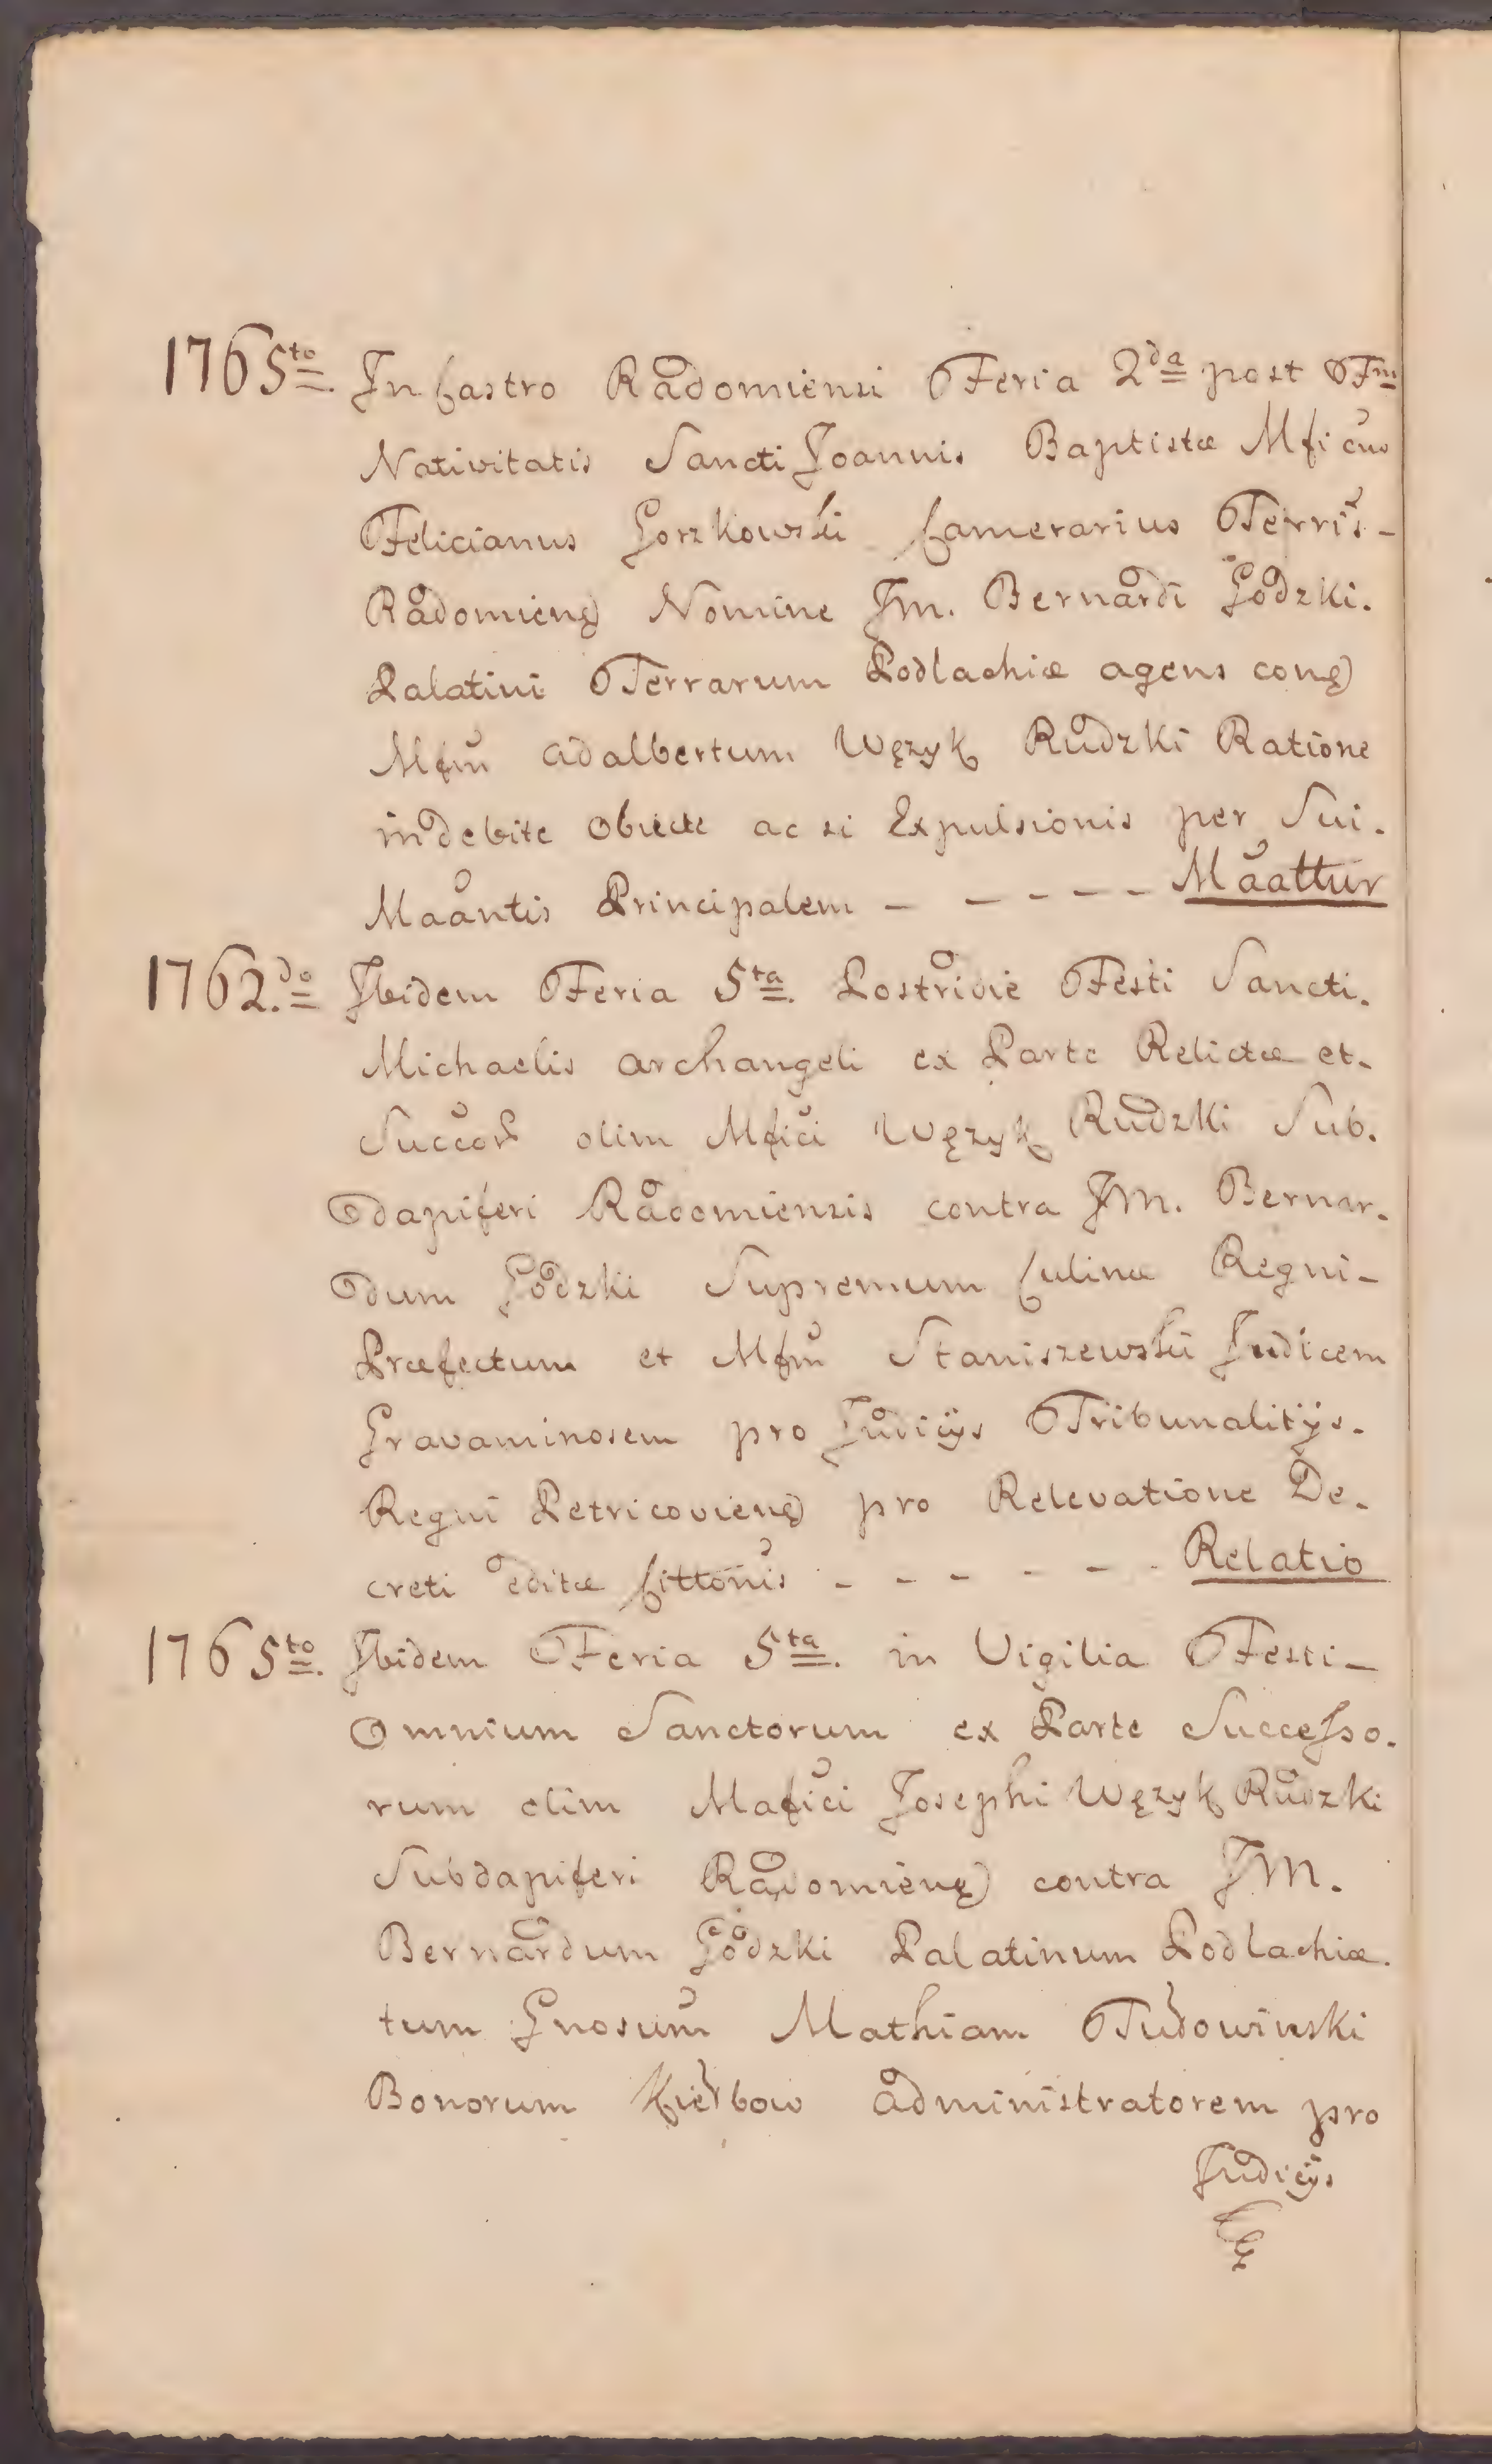 1765to. In Castro Radomiensi Feria 2da post Fm
Nativitatis Sancti Joannis Baptistæ Mficus
Felicianus Gorzkowski Camerarius Terris-
Radomieng Nomine JM. Bernardi Godzki.
Palatini Terrarum Podlachiæ agens cong
Mfm Adalbertum Wężyk Rudzki Ratione
indebite obiectæ ac si Expulsionis per Sui.
Maantis Principalem - - - - - Maattur
1762.do Ibidem Feria 5ta. Postridie Festi Sancti.
Michaelis Archangeli ex Parte Relictæ et-
Succor olim Mfici Wężyk Rudzki Sub.
dapiferi Radomiensis contra JM. Bernar.
dum Godzki Supremum Culinæ Regni-
Præfectum et Mfm Staniszewski Judicem
Gravaminosem pro Judicÿs Tribunalitÿs.
Regni Petricovieng pro Relevatione De.
creti editæ Cittonis - - - - - - Relatio
1765to. Ibidem Feria 5ta. in Vigilia Festi-
Omnium Sanctorum ex Parte Successo.
rum olim Mafici Josephi Wężyk Rudzki
Subdapiferi Radomieng contra JM.
Bernardum Godzki Palatinum Podlachiæ.
tum Gnosum Mathiam Tudowinski
Bonorum Kierbow administratorem pro
Judicÿs